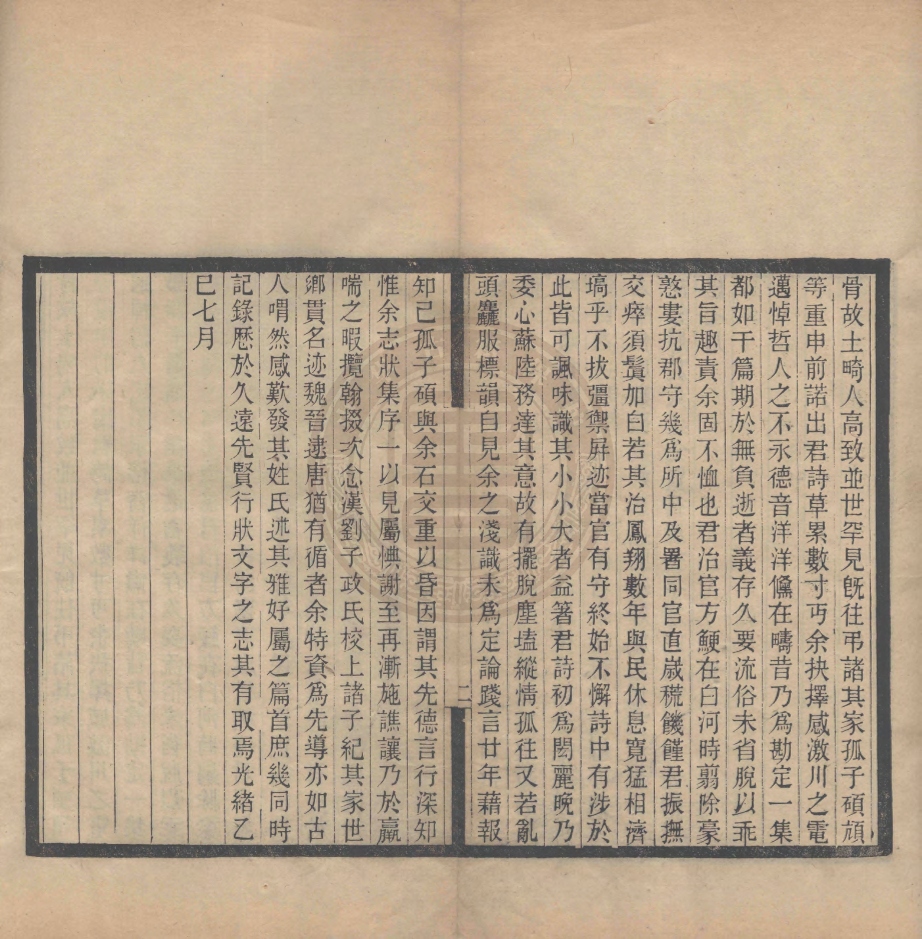 骨故土畸人高致並世罕見旣往弔諸其家孤子碩頎
等重申前諾出君詩草累數寸丐余抉擇感激川之電
邁悼哲人之不永德音洋洋儻在疇昔乃爲勘定一集
都如干篇期於無負逝者義存久要流俗未省脫以乖
其旨趣責余固不恤也君治官方鯁在白河時翦除豪
憝婁抗郡守幾爲所中及署同官直歲穊饑饉君振撫
交瘁須鬢加白若其治鳳翔數年與民休息寬猛相濟
塙乎不拔彊禦屛迹當官有守終始不懈詩中有涉於
此皆可諷味識其小小大者益箸君詩初爲閎麗晚乃
委心蘇陸務達其意故有擺脫塵壒縱情孤往又若亂
頭麤服標韻自見余之淺識未爲定論踐言廿年藉報
二
知己孤子碩與余石交重以昏因謂其先德言行深知
惟余志狀集序一以見屬惧謝至再漸施譙讓乃於羸
喘之暇攬翰掇次念漢劉子政氏校上諸子紀其家世
鄉貫名迹魏晉逮唐猶有循者余特資爲先導亦如古
人喟然感歎發其姓氏迹其雅好屬之篇首庶幾同時
記錄歷於久遠先賢行狀文字之志其有取焉光緒乙
巳七月